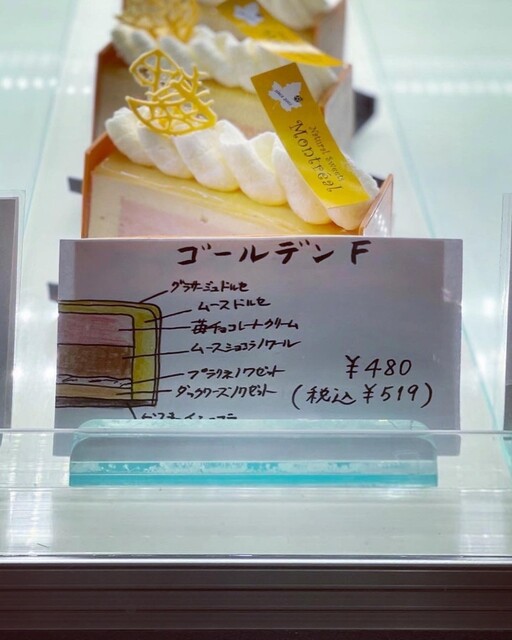 Natural Sweets
Montréal
ゴールデン F
グラサージュドルセ
ムースドルセ
苺チョコレートクリーム
ムースショコラノワール
プラリネノワゼット
ダックワーズノワゼット
¥480
(税込¥519)